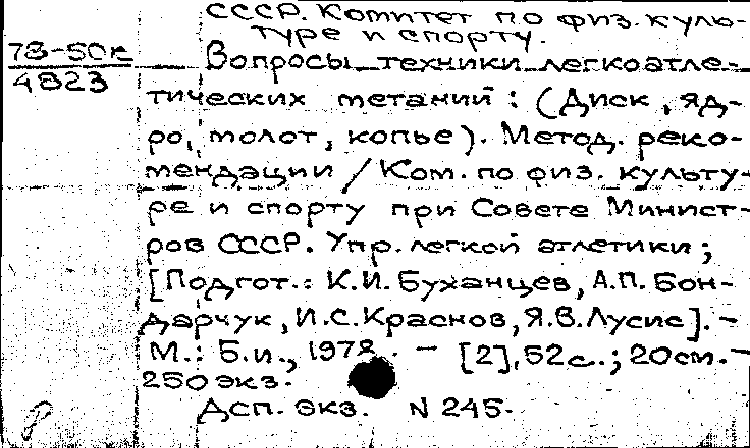 СССР. Комитет по физ. куль-
туре и спорту.
78-50к
4823
Вопросы техники легкоатле-
тических метаний: (Диск, яд-
ро, молот, копье). Метод. реко-
мендации / Ком. по физ. культу-
ре и спорту при Совете Минист-
ров СССР. Упр. легкой атлетики;
[Подгот.: К.И. Буханцев, А.П. Бон-
дарчук, И.С. Краснов, Я.В. Лусис]. -
М.: Б.и., 1978. - [2], 52с.; 20см. -
250 экз.
Дсп. экз. N 245.